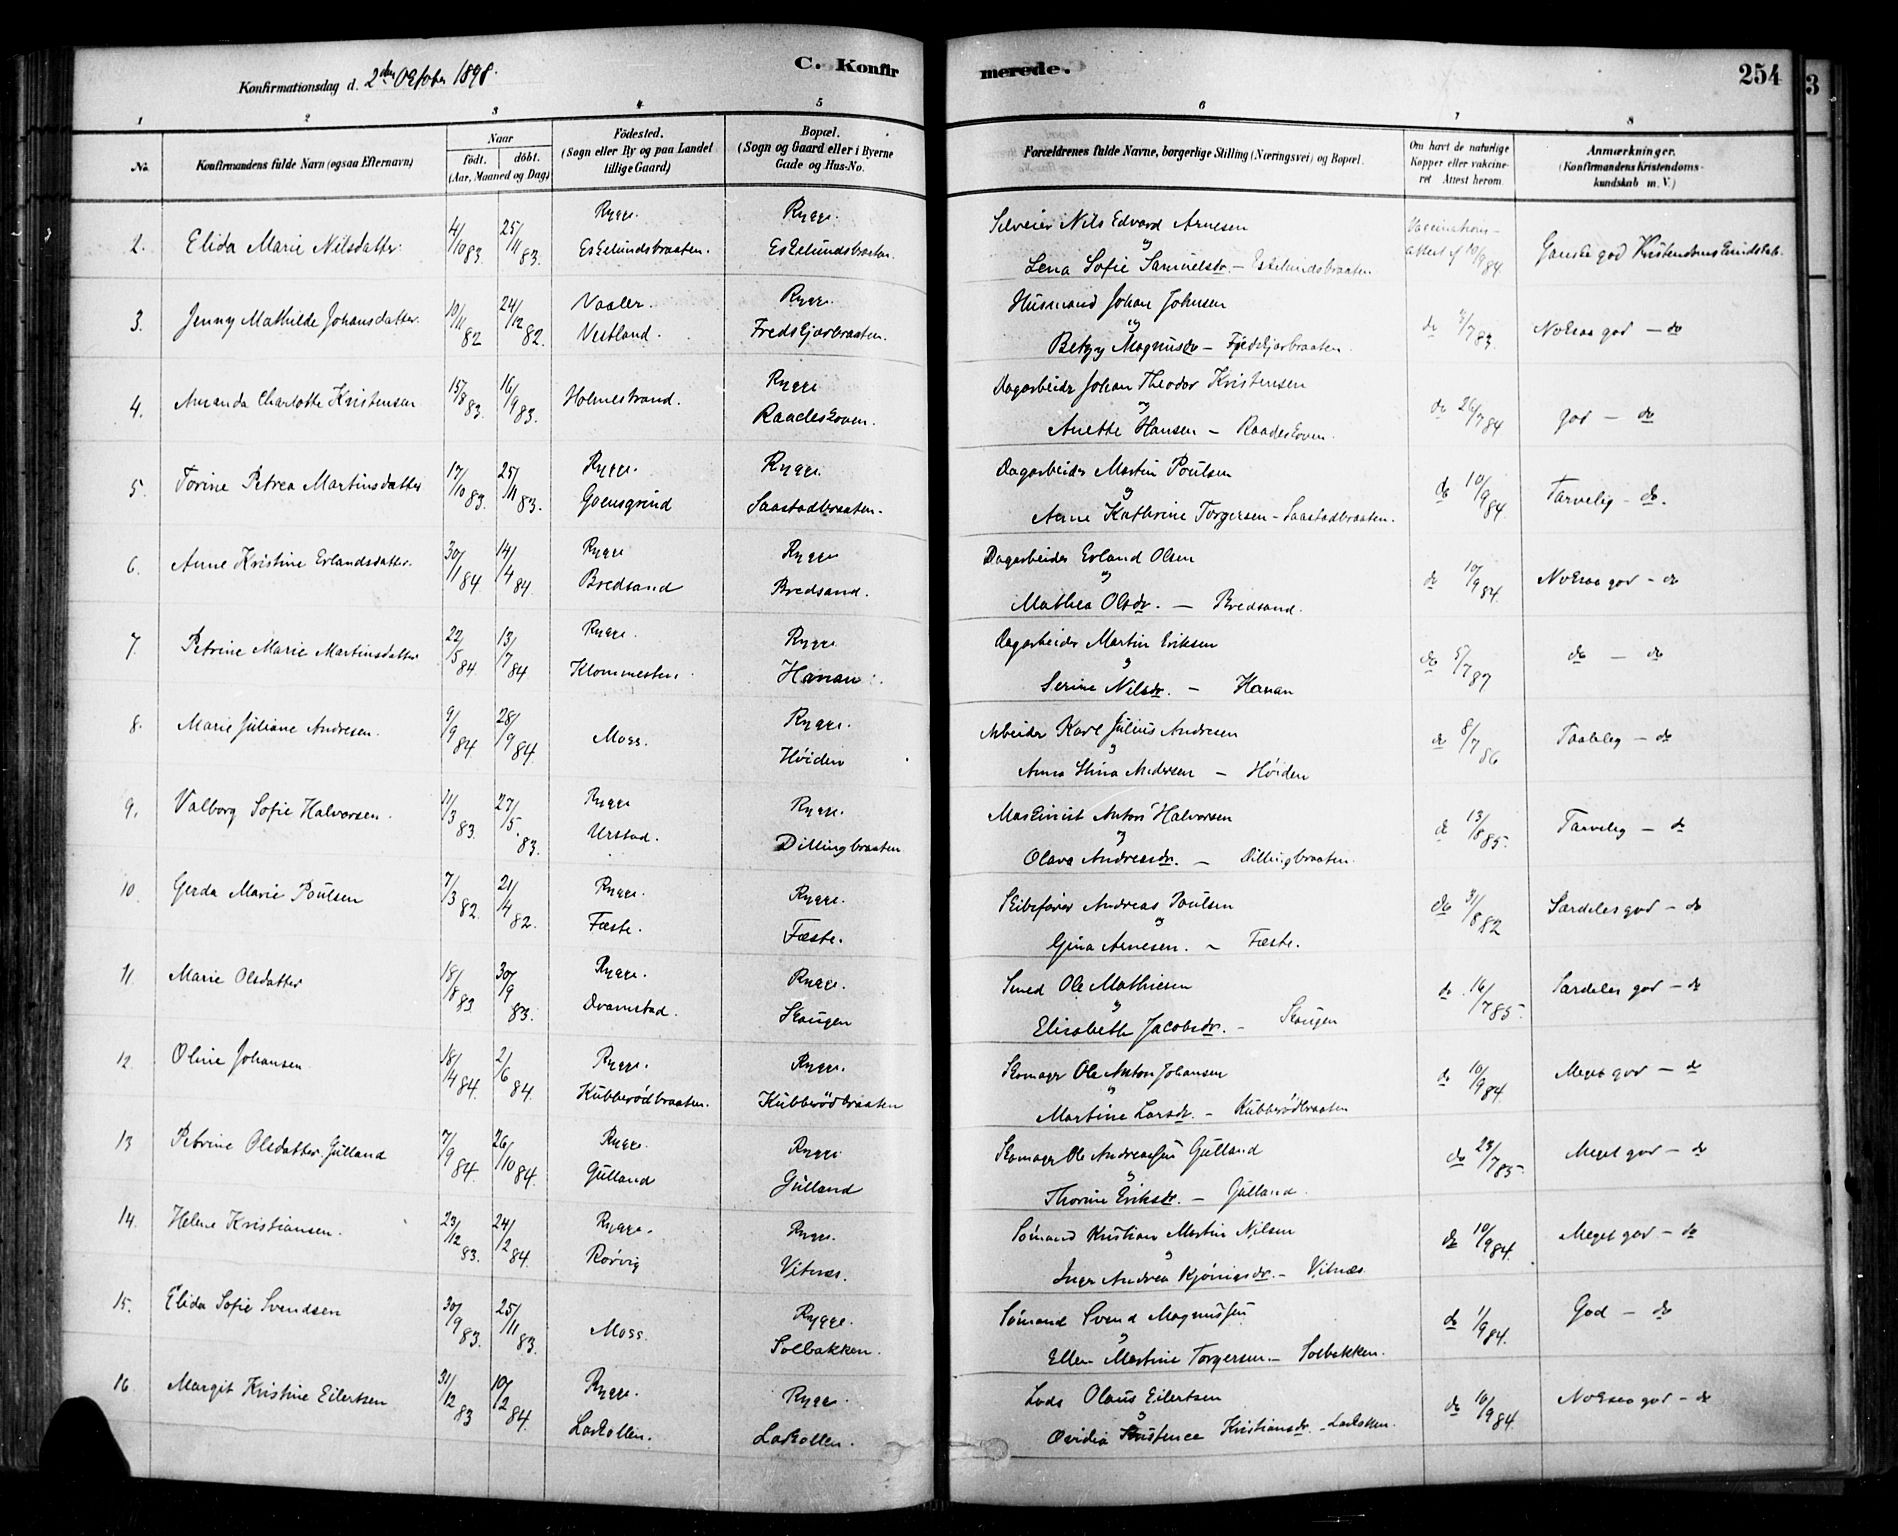 C. Konfir merede. 254
Konfirmationsdag d. 2den Oktober 1898.
1 2 3 4 5 6 7 8
No. Konfirmandens fulde Navn (ogsaa Efternavn) Naar födt. döbt. (Aar, Maaned og Dag) Födested. (Sogn eller By og paa Landet tillige Gaard) Bopæl. (Sogn og Gaard eller i Byerne Gade og Hus-No. Forældrenes fulde Navne, borgerlige Stilling (Næringsvei) og Bopæl. Om havt de naturlige Kopper eller vakcineret Attest herom. Anmærkninger. (Konfirmandens Kristendomskundskab m. V.)
2. Elida Marie Nilsdatter. 4/10 83. 25/11 83. Rygge. Eskelundsbraaten. Rygge. Eskelundsbraaten.
Nils Edvard Arnesen og Lena Sofie Samuelsdr. – Eskelundsbraaten Vaccinations-attest af 10/9 84. Ganske god Kristendomskundskab.
3. Jenny Mathilde Johansdatter. 10/11 82 24/12 82. Vaaler. Vestland. Rygge. Fredskjærbraaten.
Husmand Johan Johnsen og Betzy Magnusdr – Fredskjærbraaten. do /7 83. Noksaa god – do
4. Amanda Charlotte Kristensen 15/8 83. 16/9 83. Holmestrand. Rygge Raadeskoven.
Dagarbeider Johan Theodor Kristensen og Anette Hansen – Raadeskoven. do 26/7 84 god – do
5. Torine Petrea Martinsdatter 17/10 83. 25/11 83. Rygge. Gaensgrind Rygge. Saastadbraaten.
Dagarbeider Martin Poulsen og Anne Kathrine Torgersen – Saastadbraaten. do 10/9 84 Tarvelig – do.
6. Anne Kristine Erlandsdatter. 30/1 84. 14/4 84. Rygge Bredsand Rygge Bredsand.
Dagarbeider Erland Olsen og Mathea Olsdr. – Bredsand. do 10/9 84. Noksaa god – do
7. Petrine Marie Martinsdatter 22/5 84. 13/7 84 Rygge. Klommesten. Rygge. Hanan
Dagarbeider Martin Eriksen og Serine Nilsdr. – Hanan do 5/7 87 do – do
8. Marie Juliane Andresen. 9/9 84 28/9 84. Moss. Rygge. Höiden
Arbeider Karl Julius Andresen og Anna Stina Andersen – Höiden do 8/7 86 Taalelig – do
9. Valborg Sofie Halvorsen. 11/3 83. 27/5 83. Rygge Urstad. Rygge. Dillingbraaten
Maskinist Anton Halvorsen og Olava Andreasdr. – Dillingbraaten. do 13/8 85. Tarvelig – do
10. Gerda Marie Poulsen 7/3 82. 21/4 82. Rygge. Fæste. Rygge. Fæste.
Skibsfører Andreas Poulsen og Gina Arnesen. – Fæste. do 31/8 82 Særdeles god – do
11 Marie Olsdatter 18/8 83. 30/9 83. Rygge. Dramstad. Rygge. Skougen
Smed Ole Mathiesen og Elisabeth Jacobsdr. – Skougen do 16/7 85. Særdeles god – do
12. Oline Johansen 18/4 84. 2/6 84. Rygge. Kubberödbraaten. Rygge. Kubberödbraaten
Skomager Ole Anton Johansen og Martine Larsdr – Kubberödbraaten do 10/9 84 Meget god – do
13 Petrine Olsdatter Gulland 7/9 84. 26/10 84. Rygge. Gulland Rygge Gulland
Skomager Ole Andreassen Gulland og Thorine Eriksdr. – Gulland. do 23/7 85. Meget god – do
14. Helene Kristiansen. 23/12 83. 24/2 84. Rygge. Rörvig Rygge. Vitnæs.
Sömand Kristian Martin Nilsen og Inger Andrea Kjönigsdr. – Vitnæs do 10/9 84. Meget god – do
15. Elida Sofie Svendsen 30/9 83. 25/11 83. Moss. Rygge. Solbakken.
Sömand Svend Magnussen og Ellen Martine Torgersen. – Solbakken. do 1/9 84. God – do
16 Margit Kristine Eilertsen 31/12 83 10/2 84. Rygge. Larkollen. Rygge. Larkollen.
Lods Olaus Eilertsen og Ovidia Kristence Kristiansdr. – Larkollen. do 10/9 84. Noksaa god – do